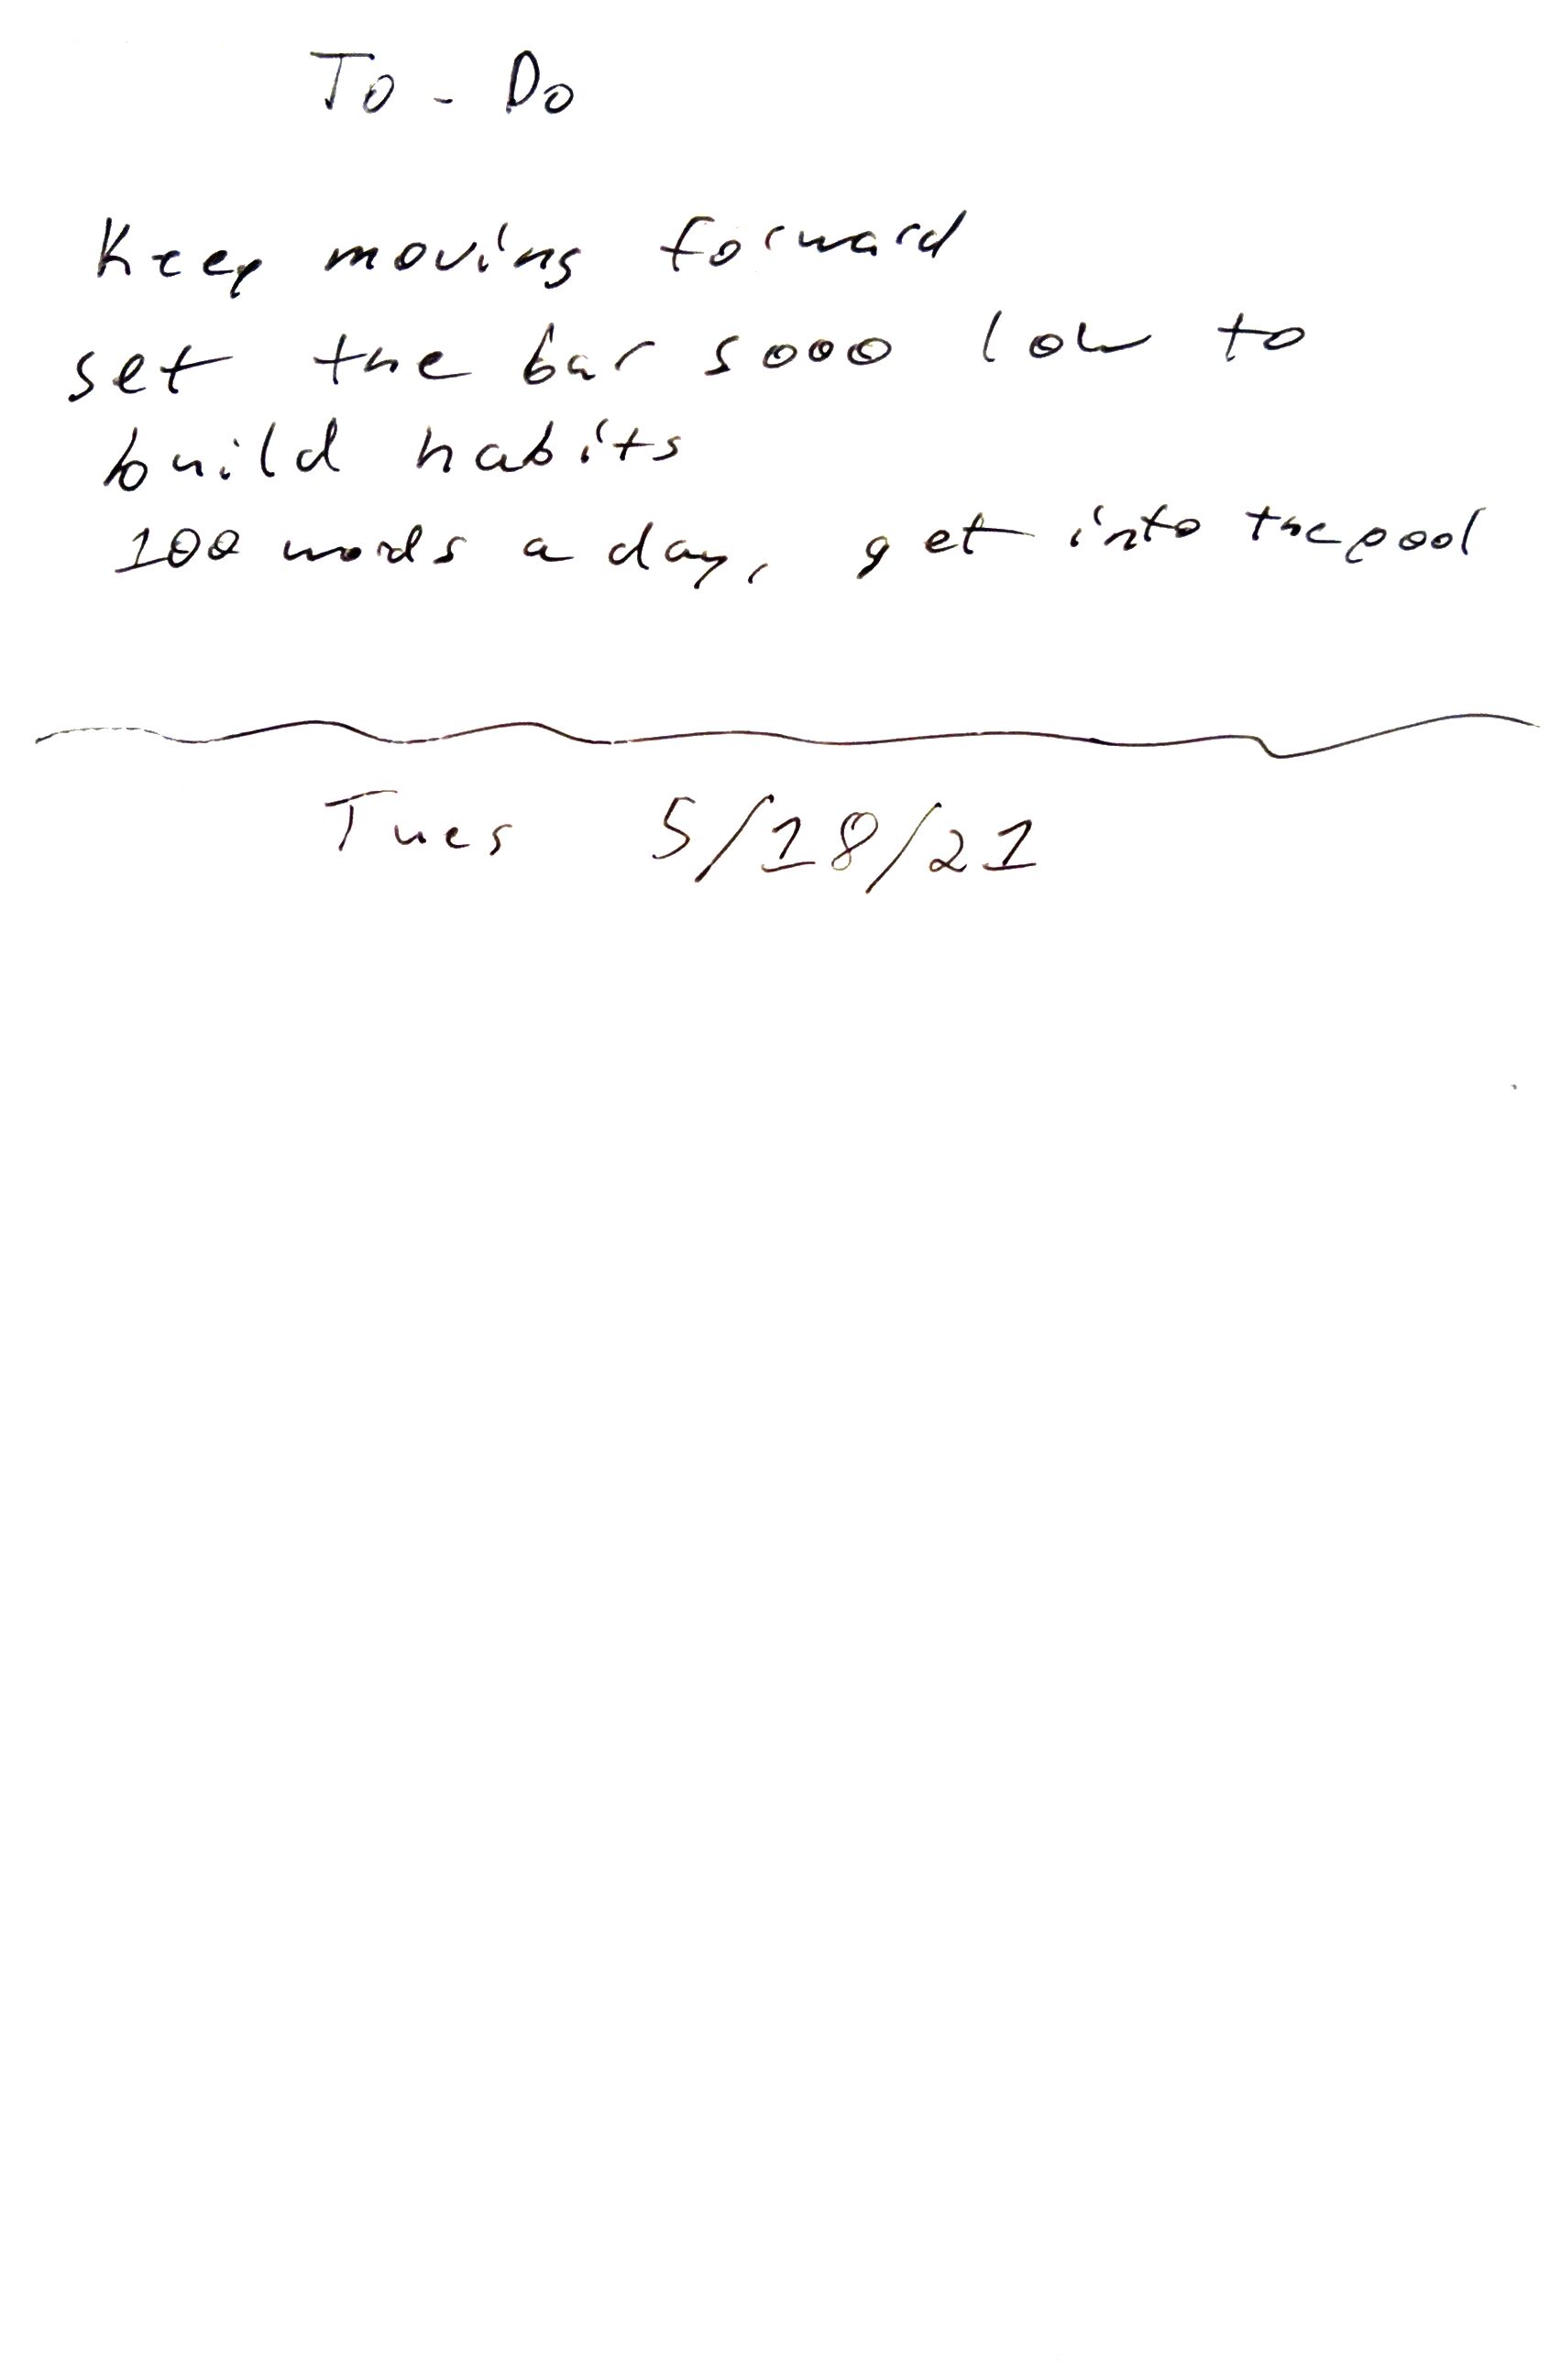 To - Do
Keep moving forward
set the bar sooo low to
build habits
100 words a day, get into the pool
Tues 5/18/21